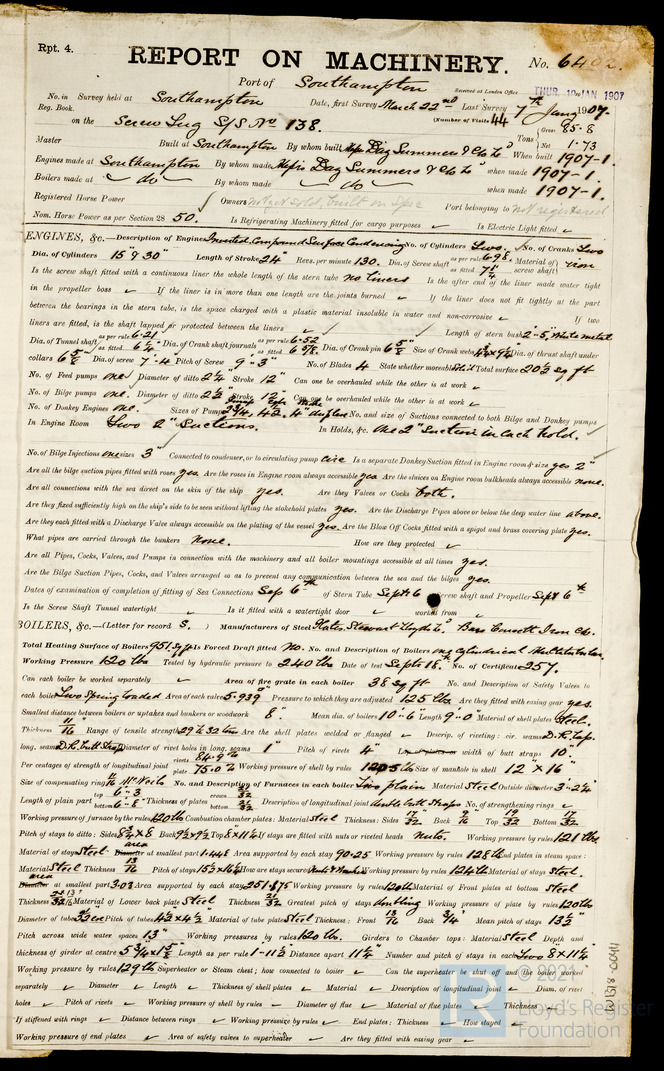 Rpt. 4.
REPORT ON MACHINERY.
No. 640
Port of Southampton
Received at London Office THUR. 10 JAN 1907
No. in Survey held at Southampton Date, first Survey March 22nd Last Survey 7th Jany 1907
Reg. Book. (Number of Visits 44
on the Screw Tug S/S No 138. Tons { Gross 85.8 Net 1.73
Master Built at Southampton By whom built Messrs Day Summers & Co Ltd When built 1907-1.
Engines made at Southampton By whom made Messrs Day Summers & Co Ltd when made 1907-1.
Boilers made at do By whom made do when made 1907-1.
Registered Horse Power Owners Not yet sold, built on Spec Port belonging to Not registered
Nom. Horse Power as per Section 28 50. Is Refrigerating Machinery fitted for cargo purposes Is Electric Light fitted
ENGINES, &c.—Description of Engines Inverted Compound Surface Condensing No. of Cylinders Two. No. of Cranks Two
Dia. of Cylinders 15" & 30" Length of Stroke 24" Revs. per minute 130. Dia. of Screw shaft as per rule 6.98 as fitted 7 1/4" Material of screw shaft iron
Is the screw shaft fitted with a continuous liner the whole length of the stern tube no liners Is the after end of the liner made water tight
in the propeller boss If the liner is in more than one length are the joints burned If the liner does not fit tightly at the part
between the bearings in the stern tube, is the space charged with a plastic material insoluble in water and non-corrosive If two
liners are fitted, is the shaft lapped or protected between the liners Length of stern bush 2'-5" White metal
Dia. of Tunnel shaft as per rule 6.21 as fitted Dia. of Crank shaft journals as per rule 6.52 as fitted 6 5/8 Dia. of Crank pin 6 5/8" Size of Crank webs Dia. of thrust shaft under
collars 6 5/8" Dia. of screw 7'-4 Pitch of Screw 9'-3" No. of Blades 4 State whether moveable Total surface 20 1/2 sq ft
No. of Feed pumps one Diameter of ditto 2 1/4" Stroke 12" Can one be overhauled while the other is at work
No. of Bilge pumps one. Diameter of ditto 2 1/2 Stroke 12" Can one be overhauled while the other is at work
No. of Donkey Engines one. Sizes of Pumps 4" duplex No. and size of Suctions connected to both Bilge and Donkey pumps
In Engine Room Two 2" Suctions. In Holds, &c. one 2" Suction in each hold.
No. of Bilge Injections one sizes 3" Connected to condenser, or to circulating pump circ Is a separate Donkey Suction fitted in Engine room & size yes 2"
Are all the bilge suction pipes fitted with roses yes. Are the roses in Engine room always accessible yes Are the sluices on Engine room bulkheads always accessible none.
Are all connections with the sea direct on the skin of the ship yes. Are they Valves or Cocks both.
Are they fixed sufficiently high on the ship's side to be seen without lifting the stokehold plates yes. Are the Discharge Pipes above or below the deep water line above.
Are they each fitted with a Discharge Valve always accessible on the plating of the vessel yes. Are the Blow Off Cocks fitted with a spigot and brass covering plate yes.
What pipes are carried through the bunkers none. How are they protected
Are all Pipes, Cocks, Valves, and Pumps in connection with the machinery and all boiler mountings accessible at all times yes.
Are the Bilge Suction Pipes, Cocks, and Valves arranged so as to prevent any communication between the sea and the bilges yes.
Dates of examination of completion of fitting of Sea Connections Sep 6th of Stern Tube Sept 6 Screw shaft and Propeller Sept 6th
Is the Screw Shaft Tunnel watertight Is it fitted with a watertight door worked from
BOILERS, &c.—(Letter for record S.) Manufacturers of Steel Plates Stewart & Lloyds Ld. Bars Consett Iron Co.
Total Heating Surface of Boilers 951 sq ft Is Forced Draft fitted No. No. and Description of Boilers one cylindrical Multitubular
Working Pressure 120 lbs Tested by hydraulic pressure to 240 lbs Date of test Sept 18th No. of Certificate 257.
Can each boiler be worked separately Area of fire grate in each boiler 38 sq ft No. and Description of Safety Valves to
each boiler Two Spring loaded Area of each valve 5.939" Pressure to which they are adjusted 125 lbs. Are they fitted with easing gear yes.
Smallest distance between boilers or uptakes and bunkers or woodwork 8". Mean dia. of boilers 10'-6" Length 9'-0" Material of shell plates Steel.
Thickness 11/16 Range of tensile strength 29 to 32 tons Are the shell plates welded or flanged Descrip. of riveting: cir. seams D.R. Lap.
long. seams D.R. Butt Straps Diameter of rivet holes in long. seams 1" Pitch of rivets 4" width of butt straps 10".
Per centages of strength of longitudinal joint rivets 84.9% plate 75.0% Working pressure of shell by rules Size of manhole in shell 12" x 16"
Size of compensating ring McNeils No. and Description of Furnaces in each boiler Two plain Material Steel Outside diameter 3'-2 1/4"
Length of plain part top 6'-3 bottom 6'-8" Thickness of plates crown bottom Description of longitudinal joint double butt straps No. of strengthening rings
Working pressure of furnace by the rules 120 lbs Combustion chamber plates: Material Steel Thickness: Sides 17/32 Back 9/16 Top 19/32 Bottom 17/32
Pitch of stays to ditto: Sides Back 9 1/2 x 9 1/2 Top 8 x 11 1/4 If stays are fitted with nuts or riveted heads nuts. Working pressure by rules 121 lbs
Material of stays Steel. area at smallest part 1.448 Area supported by each stay 90.25 Working pressure by rules 128 lbs End plates in steam space:
Material Steel Thickness 13/16 Pitch of stays How are stays secured Working pressure by rules 124 lbs Material of stays Steel.
area at smallest part 3.03 Area supported by each stay 251.875 Working pressure by rules 120 lbs Material of Front plates at bottom Steel
Thickness Material of Lower back plate Steel Thickness Greatest pitch of stays doubling Working pressure of plate by rules 120 lbs
Diameter of tubes Pitch of tubes 4 1/2 x 4 1/2 Material of tube plates Steel Thickness: Front 13/16 Back 3/4" Mean pitch of stays 13 1/2"
Pitch across wide water spaces 13" Working pressures by rules 120 lbs. Girders to Chamber tops: Material Steel Depth and
thickness of girder at centre Length as per rule 1'-11 1/2" Distance apart 11 1/4" Number and pitch of stays in each Two 8 x 11 1/4"
Working pressure by rules 129 lbs Superheater or Steam chest; how connected to boiler Can the superheater be shut off and the boiler worked
separately Diameter Length Thickness of shell plates Material Description of longitudinal joint Diam. of rivet
holes Pitch of rivets Working pressure of shell by rules Diameter of flue Material of flue plates Thickness
If stiffened with rings Distance between rings Working pressure by rules End plates: Thickness How stayed
Working pressure of end plates Area of safety valves to superheater Are they fitted with easing gear
© 2021
Lloyd's Register
Foundation